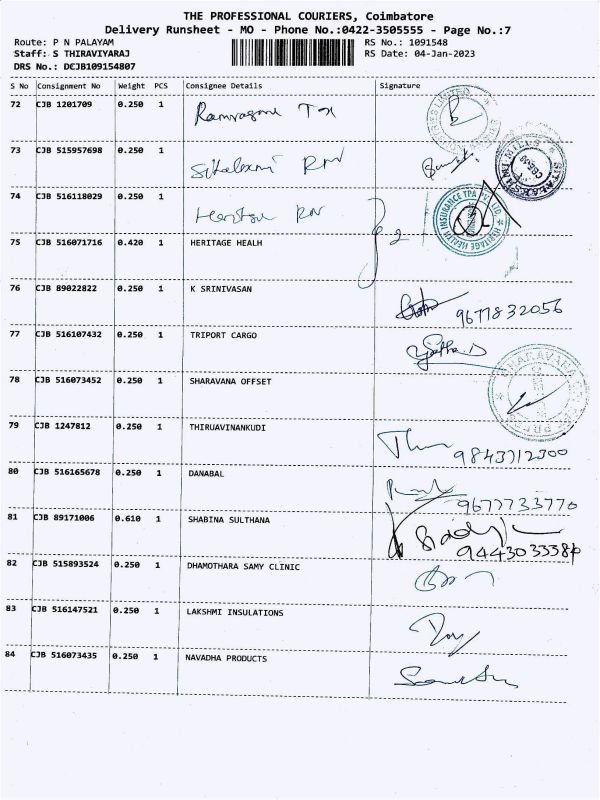 THE PROFESSIONAL COURIERS, Coimbatore
Delivery Runsheet - MO - Phone No.:0422-3505555 - Page No.:7
Route: P N PALAYAM RS No.: 1091548
Staff: S THIRAVIYARAJ RS Date: 04-Jan-2023
DRS No.: DCJB109154807
S No Consignment No Weight PCS Consignee Details Signature
72 CJB 1201709 0.250 1
73 CJB 515957698 0.250 1
74 CJB 516118029 0.250 1
75 CJB 516071716 0.420 1 HERITAGE HEALH
HERITAGE HEALTH INSURANCE TPA PVT. LTD.
76 CJB 89022822 0.250 1 K SRINIVASAN 9677832056
77 CJB 516107432 0.250 1 TRIPORT CARGO
78 CJB 516073452 0.250 1 SHARAVANA OFFSET
79 CJB 1247812 0.250 1 THIRUAVINANKUDI 9843712300
80 CJB 516165678 0.250 1 DANABAL 9677733770
81 CJB 89171006 0.610 1 SHABINA SULTHANA
82 CJB 515893524 0.250 1 DHAMOTHARA SAMY CLINIC
83 CJB 516147521 0.250 1 LAKSHMI INSULATIONS
84 CJB 516073435 0.250 1 NAVADHA PRODUCTS